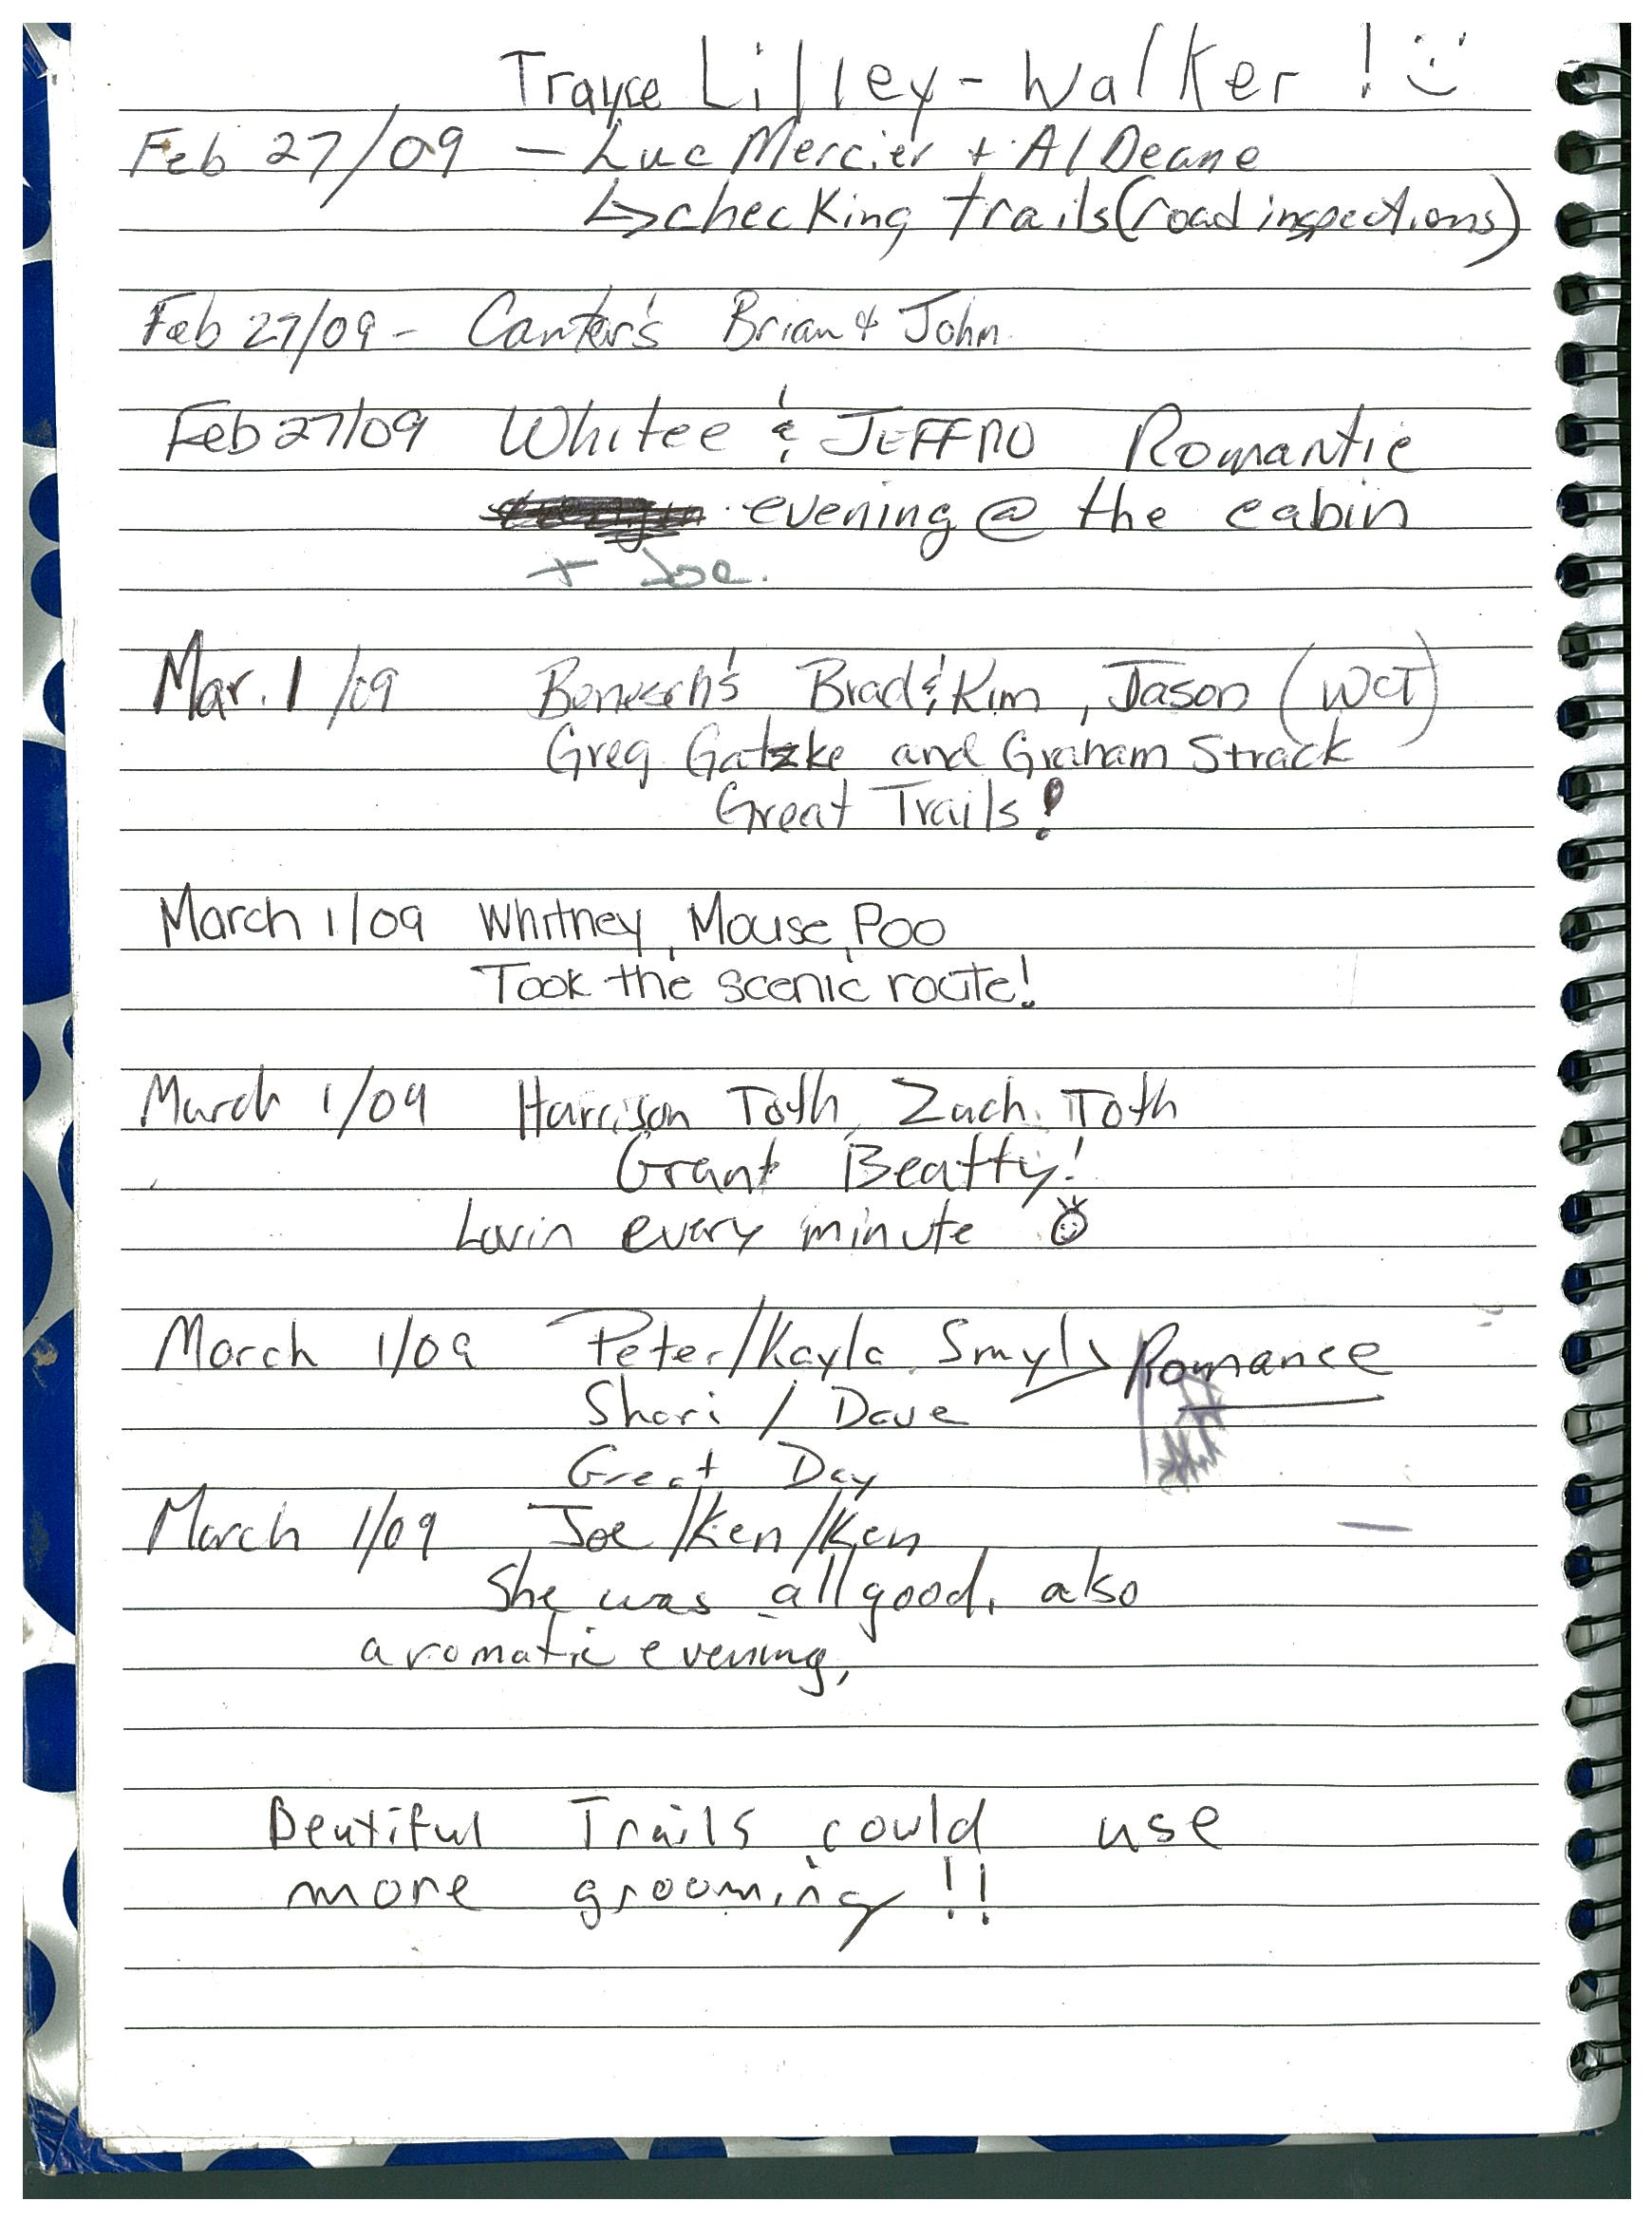 Trayce Lilley-Walker!
Feb 27/09 - Luc Mercier + Al Deane
↳ checking trails (road inspections)
Feb 27/09 - Canter's Brian & John
Feb 27/09 Whitee & JEFFRO Romantic
evening @ the cabin
+ Joe.
Mar. 1/09 Brad & Kim, Jason (WCT)
Greg Gatzke and Graham Strack
Great Trails!
March 1/09 Whitney, Mouse, Poo
Took the scenic route!
March 1/09 Harrison Toth, Zach Toth
Grant Beatty!
Lovin every minute
March 1/09 Peter/Kayla Smyl Romance
Shari / Dave
Great Day
March 1/09 Joe/Ken/Ken
She was all good, also
aromatic evening,
Beutiful Trails could use
more grooming!!